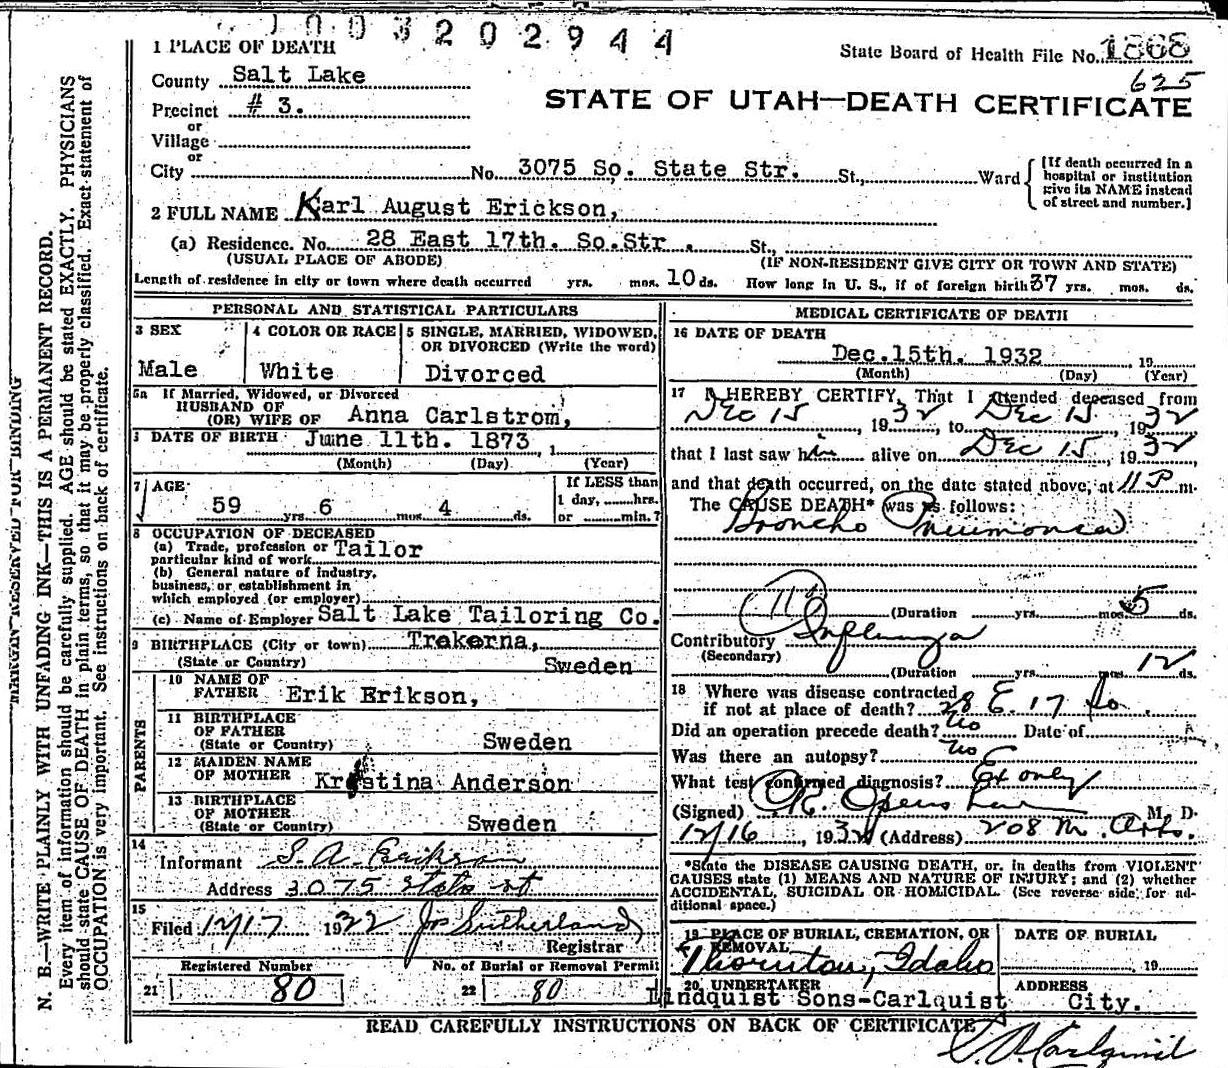 1003202944
1 PLACE OF DEATH
State Board of Health File No. 1868
625
County Salt Lake
STATE OF UTAH—DEATH CERTIFICATE
Precinct # 3.
or
Village
or
City No. 3075 So. State Str. St., Ward
[If death occurred in a
hospital or institution
give its NAME instead
of street and number.]
2 FULL NAME Karl August Erickson,
(a) Residence. No. 28 East 17th. So.Str. St.,
(USUAL PLACE OF ABODE) (IF NON-RESIDENT GIVE CITY OR TOWN AND STATE)
Length of residence in city or town where death occurred yrs. mos. 10 ds. How long in U. S., if of foreign birth 37 yrs. mos. ds.
PERSONAL AND STATISTICAL PARTICULARS
3 SEX
Male
4 COLOR OR RACE
White
5 SINGLE, MARRIED, WIDOWED,
OR DIVORCED (Write the word)
Divorced
5a If Married, Widowed, or Divorced
HUSBAND OF
(OR) WIFE OF Anna Carlstrom,
DATE OF BIRTH June 11th. 1873, 1
(Month) (Day) (Year)
7 AGE
59 yrs. 6 mos. 4 ds.
If LESS than
1 day, hrs.
or min.?
8 OCCUPATION OF DECEASED
(a) Trade, profession or
particular kind of work Tailor
(b) General nature of industry,
business, or establishment in
which employed (or employer)
(c) Name of Employer Salt Lake Tailoring Co.
9 BIRTHPLACE (City or town) Trekerna,
(State or Country) Sweden
PARENTS
10 NAME OF
FATHER Erik Erikson,
11 BIRTHPLACE
OF FATHER
(State or Country) Sweden
12 MAIDEN NAME
OF MOTHER Kristina Anderson
13 BIRTHPLACE
OF MOTHER
(State or Country) Sweden
14
Informant S. A. Erikson
Address 3075 State st
15
Filed 12/17 1932 Jos Sutherland
Registrar
Registered Number
21 80
No. of Burial or Removal Permit
22 80
MEDICAL CERTIFICATE OF DEATH
16 DATE OF DEATH
Dec. 15th. 1932, 19
(Month) (Day) (Year)
17 I HEREBY CERTIFY, That I attended deceased from
Dec 15, 1932, to Dec 15, 1932
that I last saw him alive on Dec 15, 1932
and that death occurred, on the date stated above, at 11 P m.
The CAUSE DEATH* was as follows:
Broncho Pneumonia
(Duration yrs. mos. 5 ds.
Contributory Influenza
(Secondary)
(Duration yrs. mos. 12 ds.
18 Where was disease contracted
if not at place of death? 28 E. 17 So.
Did an operation precede death? No Date of
Was there an autopsy? No
What test confirmed diagnosis? Ex only
(Signed) M. D.
12/16, 1932 (Address) 208 M. Arts.
*State the DISEASE CAUSING DEATH, or, in deaths from VIOLENT
CAUSES state (1) MEANS AND NATURE OF INJURY; and (2) whether
ACCIDENTAL, SUICIDAL OR HOMICIDAL. (See reverse side for ad-
ditional space.)
19 PLACE OF BURIAL, CREMATION, OR
REMOVAL
Thornton, Idaho
DATE OF BURIAL
, 19
20 UNDERTAKER
Lindquist Sons-Carlquist
ADDRESS
City.
READ CAREFULLY INSTRUCTIONS ON BACK OF CERTIFICATE
C. A. Carlquist
MARGIN RESERVED FOR BINDING
N. B.—WRITE PLAINLY WITH UNFADING INK—THIS IS A PERMANENT RECORD.
Every item of information should be carefully supplied. AGE should be stated EXACTLY. PHYSICIANS
should state CAUSE OF DEATH in plain terms, so that it may be properly classified. Exact statement of
OCCUPATION is very important. See instructions on back of certificate.